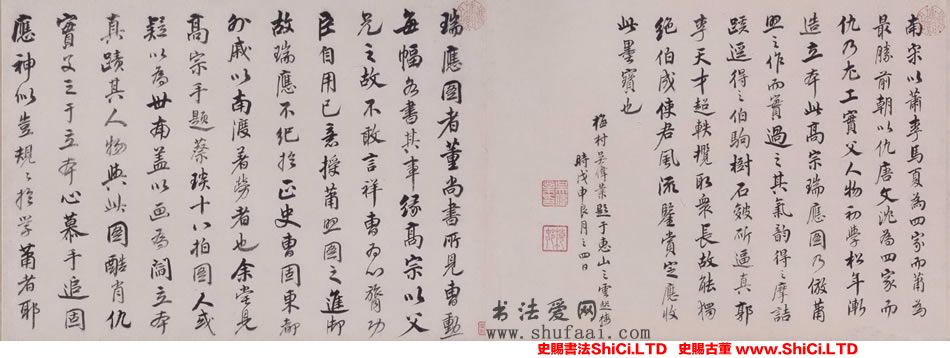 南宋以蕭李馬夏為四家而蕭為
最勝前朝以仇唐文沈為四家而
仇乃尤工實父人物初學松年漸
造立本此高宗瑞應圖乃倣蕭
照之作而實過之其氣韵得之摩詰
蹊逕得之伯駒樹石皴斫逼真郭
李天才超軼攬取衆長故能獨
絕伯成使君風流鑒賞定應收
此墨寶也
梅村吳偉業題于惠山之雲起樓
時戊申良月之四日
瑞應圖者董尚書所見曹勳
每幅各書其事緣高宗以父
兄之故不敢言祥曹為心膂功
臣自用已意授蕭照圖之進御
故瑞應不紀於正史曹固東都
外戚以南渡著勞者也余嘗見
高宗手題蔡琰十八拍圖人或
疑以為世南蓋以画為閻立本
真蹟其人物與此圖酷肖仇
實父三于立本心慕手追固
應神似豈規之於學蕭者耶
书法爱网
www.shufaai.com
史賜書法ShiCi.LTD 史賜古董 www.ShiCi.LTD